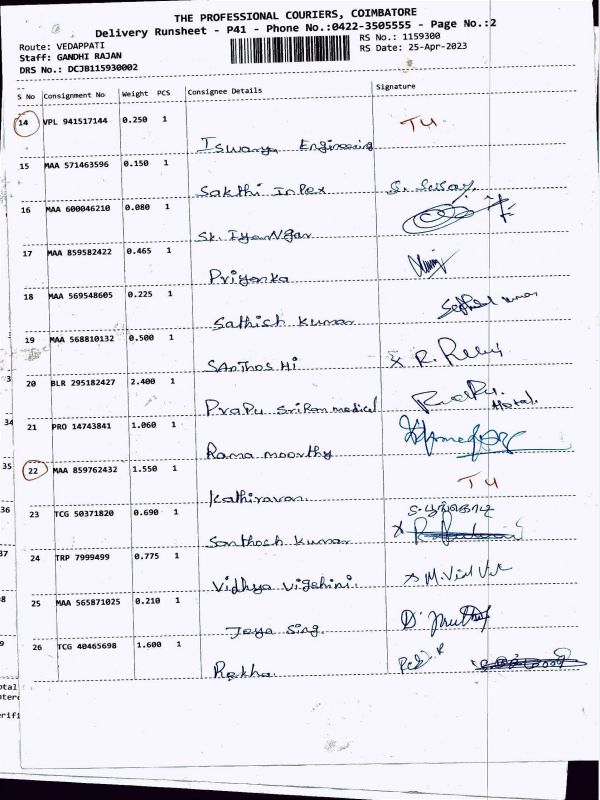 THE PROFESSIONAL COURIERS, COIMBATORE
Delivery Runsheet - P41 - Phone No.:0422-3505555 - Page No.:2
Route: VEDAPPATI
RS No.: 1159300
Staff: GANDHI RAJAN
RS Date: 25-Apr-2023
DRS No.: DCJB115930002
S No Consignment No Weight PCS Consignee Details Signature
14 VPL 941517144 0.250 1 T4
Iswarya Engineering
15 MAA 571463596 0.150 1
Sakthi Inpex
16 MAA 600046210 0.080 1
Sk. IyaNgar
17 MAA 859582422 0.465 1
Priyanka
18 MAA 569548605 0.225 1
Sathish kumar
19 MAA 568810132 0.500 1
SAnThosHi
20 BLR 295182427 2.400 1
Prapu SriRam medical
Hotal.
21 PRO 14743841 1.060 1
Rama moorthy
22 MAA 859762432 1.550 1 T4
Kathiravan
23 TCG 50371820 0.690 1
Santhosh kumar
24 TRP 7999499 0.775 1
Vidhya vigahini.
25 MAA 565871025 0.210 1
Jeya Sing.
26 TCG 40465698 1.600 1
Rekha